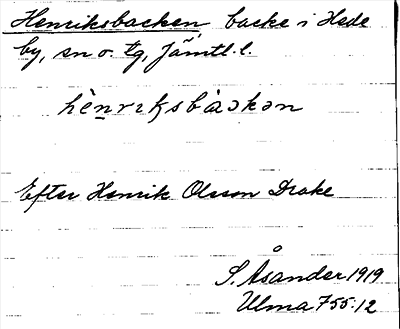 Henriksbacken backe i Hede
by, sn o. tg, Jämtl. l.
Efter Henrik Olsson Drake
S. Åsander 1919
Ulma 755:12